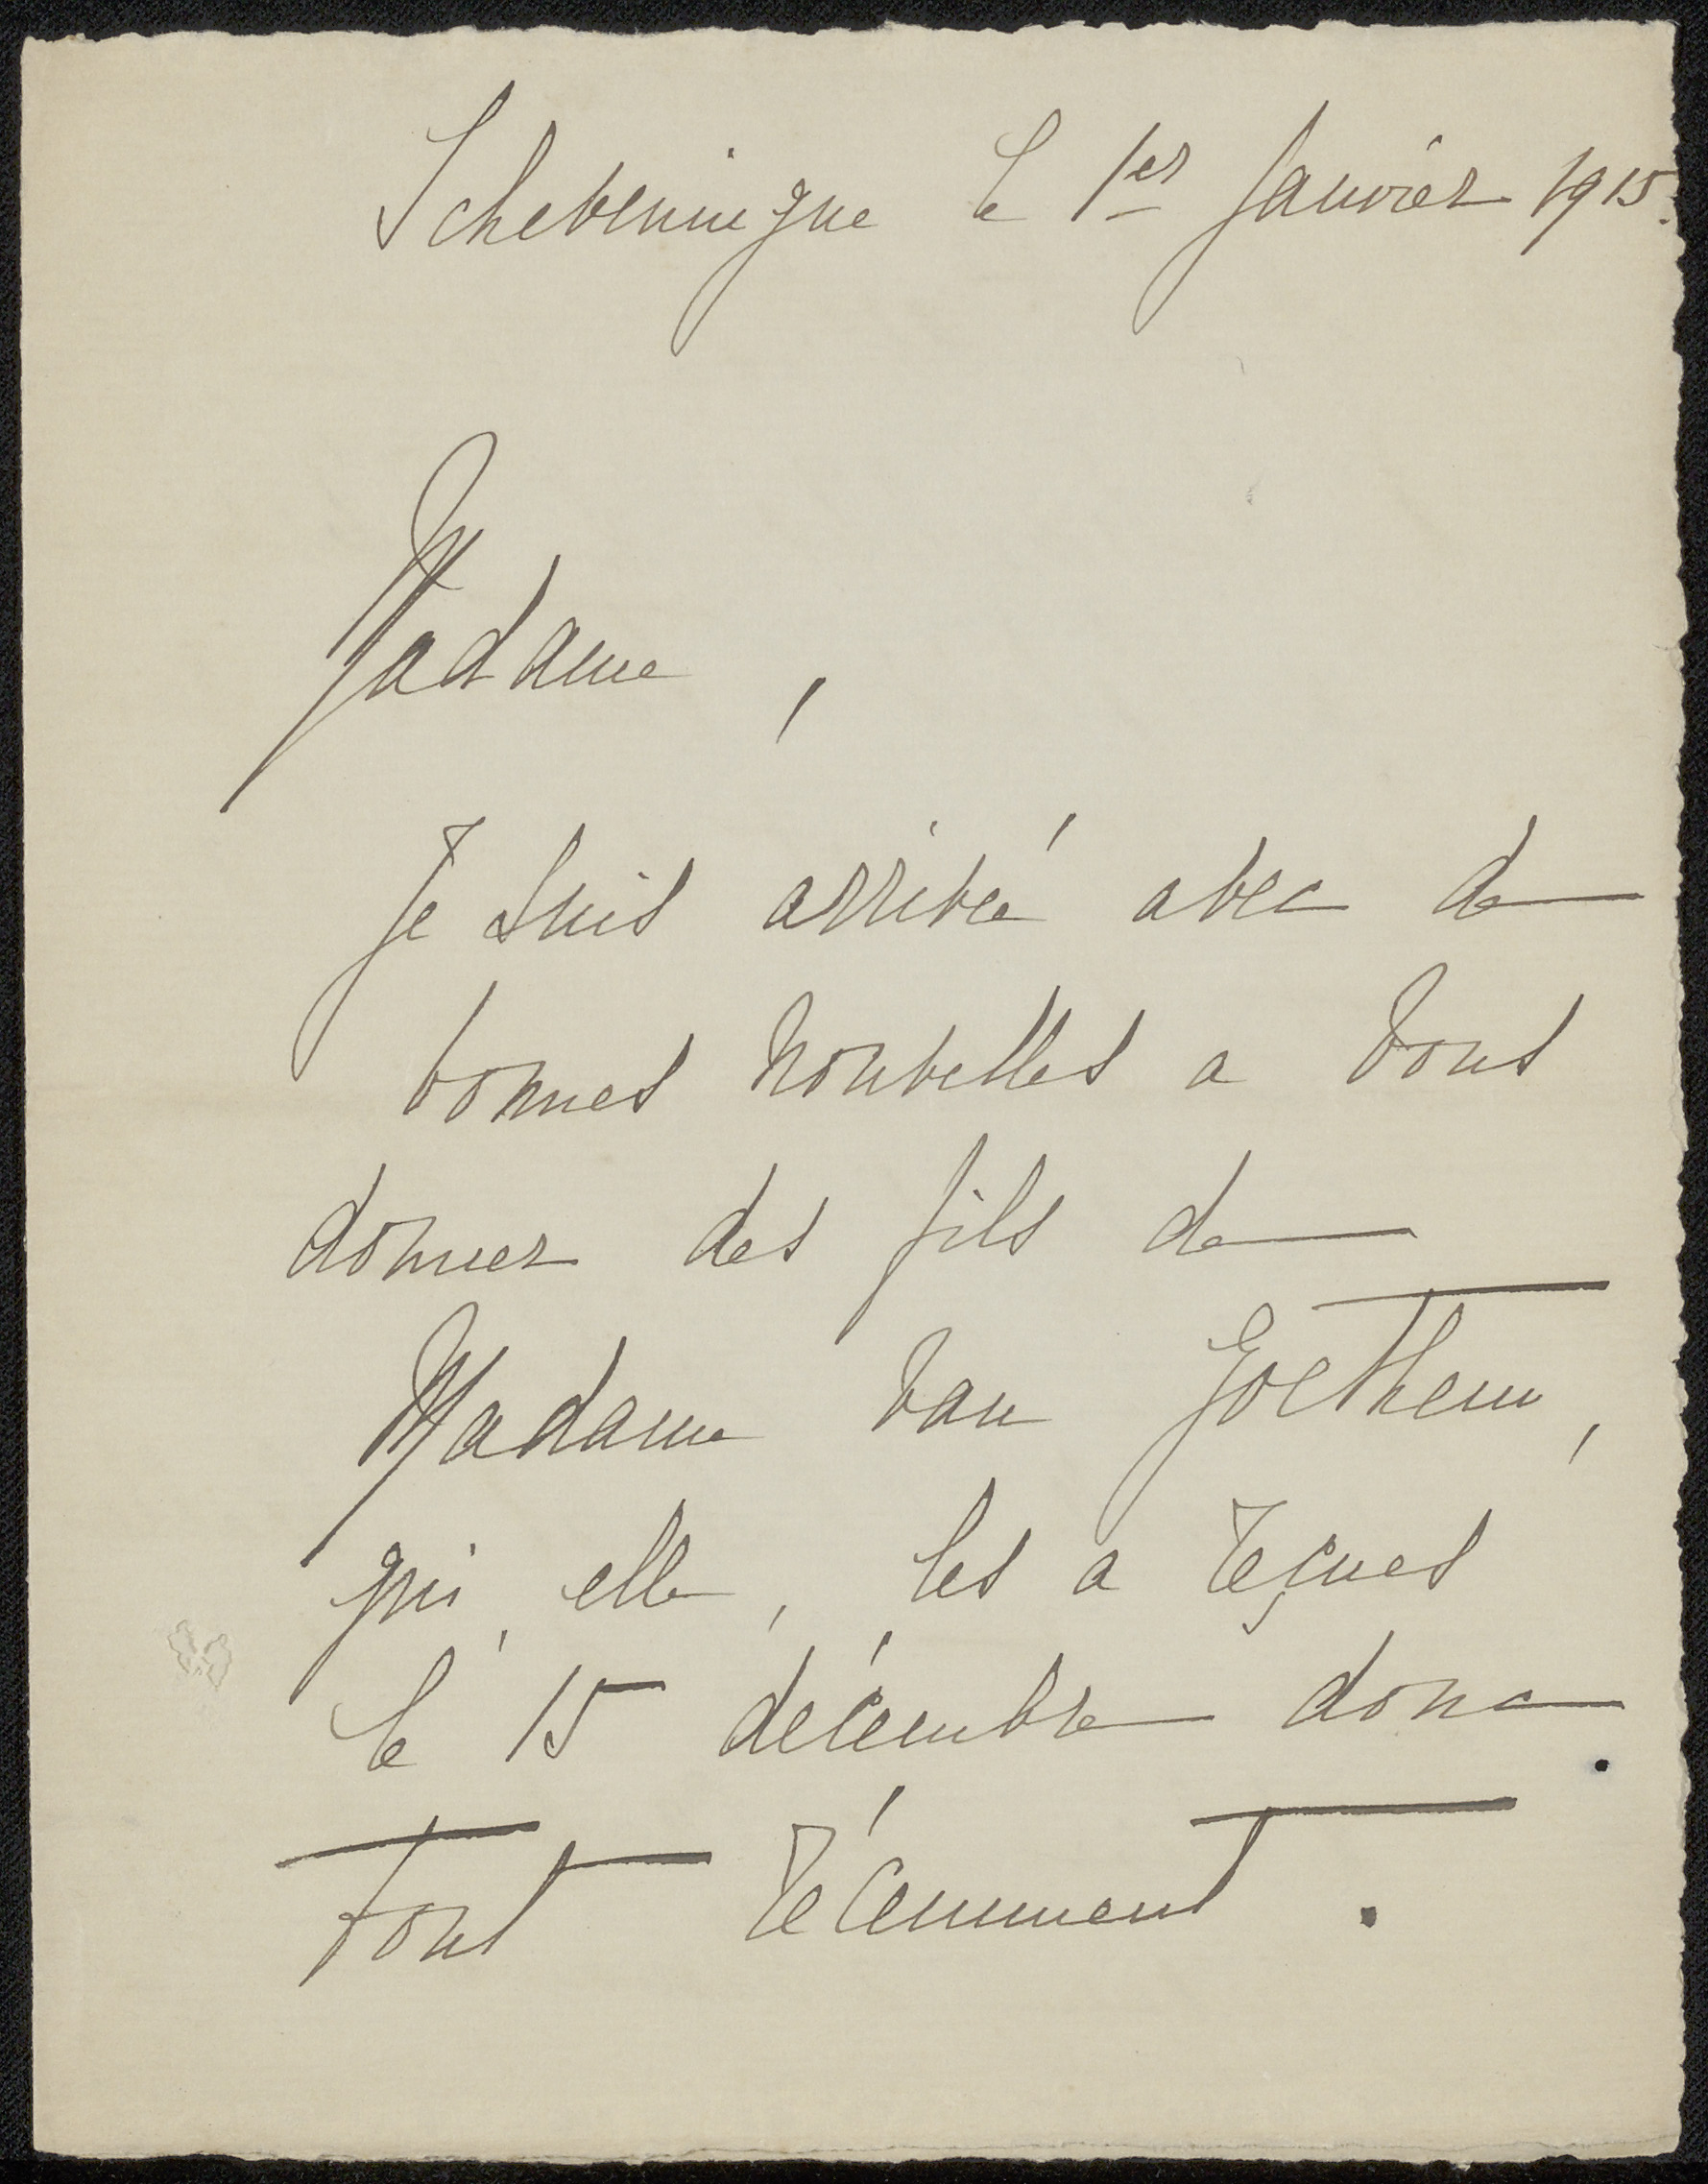 Scheveningue le 1er Janvier 1915.
Madame,
Je suis arrivée avec de
bonnes nouvelles a vous
donner des fils de
Madame van Goethem,
qui, elle, les a reçues
le 15 décembre donc
tout récemment.